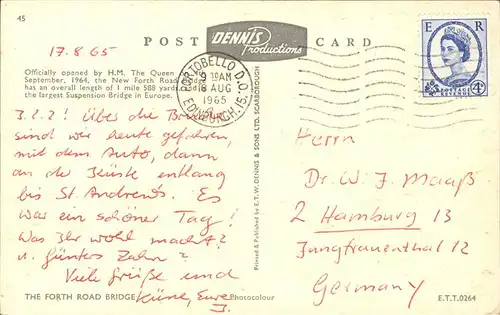 45
POST
DENNIS
Productions
CARD
E R
POSTAGE REVENUE
4D
PORTOBELLO D.O.
AM
18 AUG
1965
EDINBURGH. 15.
17.8.65
Officially opened by H.M. The Queen
September, 1964, the New Forth Road
has an overall length of 1 mile 588 yards
the largest Suspension Bridge in Europe.
Über die Brücke
sind wir heute gefahren,
mit dem Auto, dann
an der Küste entlang
bis St. Andrews. Es
war ein schöner Tag!
Was Ihr wohl macht?
u. Günters Zahn?
Viele Grüße und
Küsse, Eure
I.
THE FORTH ROAD BRIDGE
Photocolour
Printed & Published by E.T.W. DENNIS & SONS LTD. SCARBOROUGH
Herrn
Dr. W. J. Maaß
2 Hamburg 13
Jungfrauenthal 12
Germany
E.T.T.0264